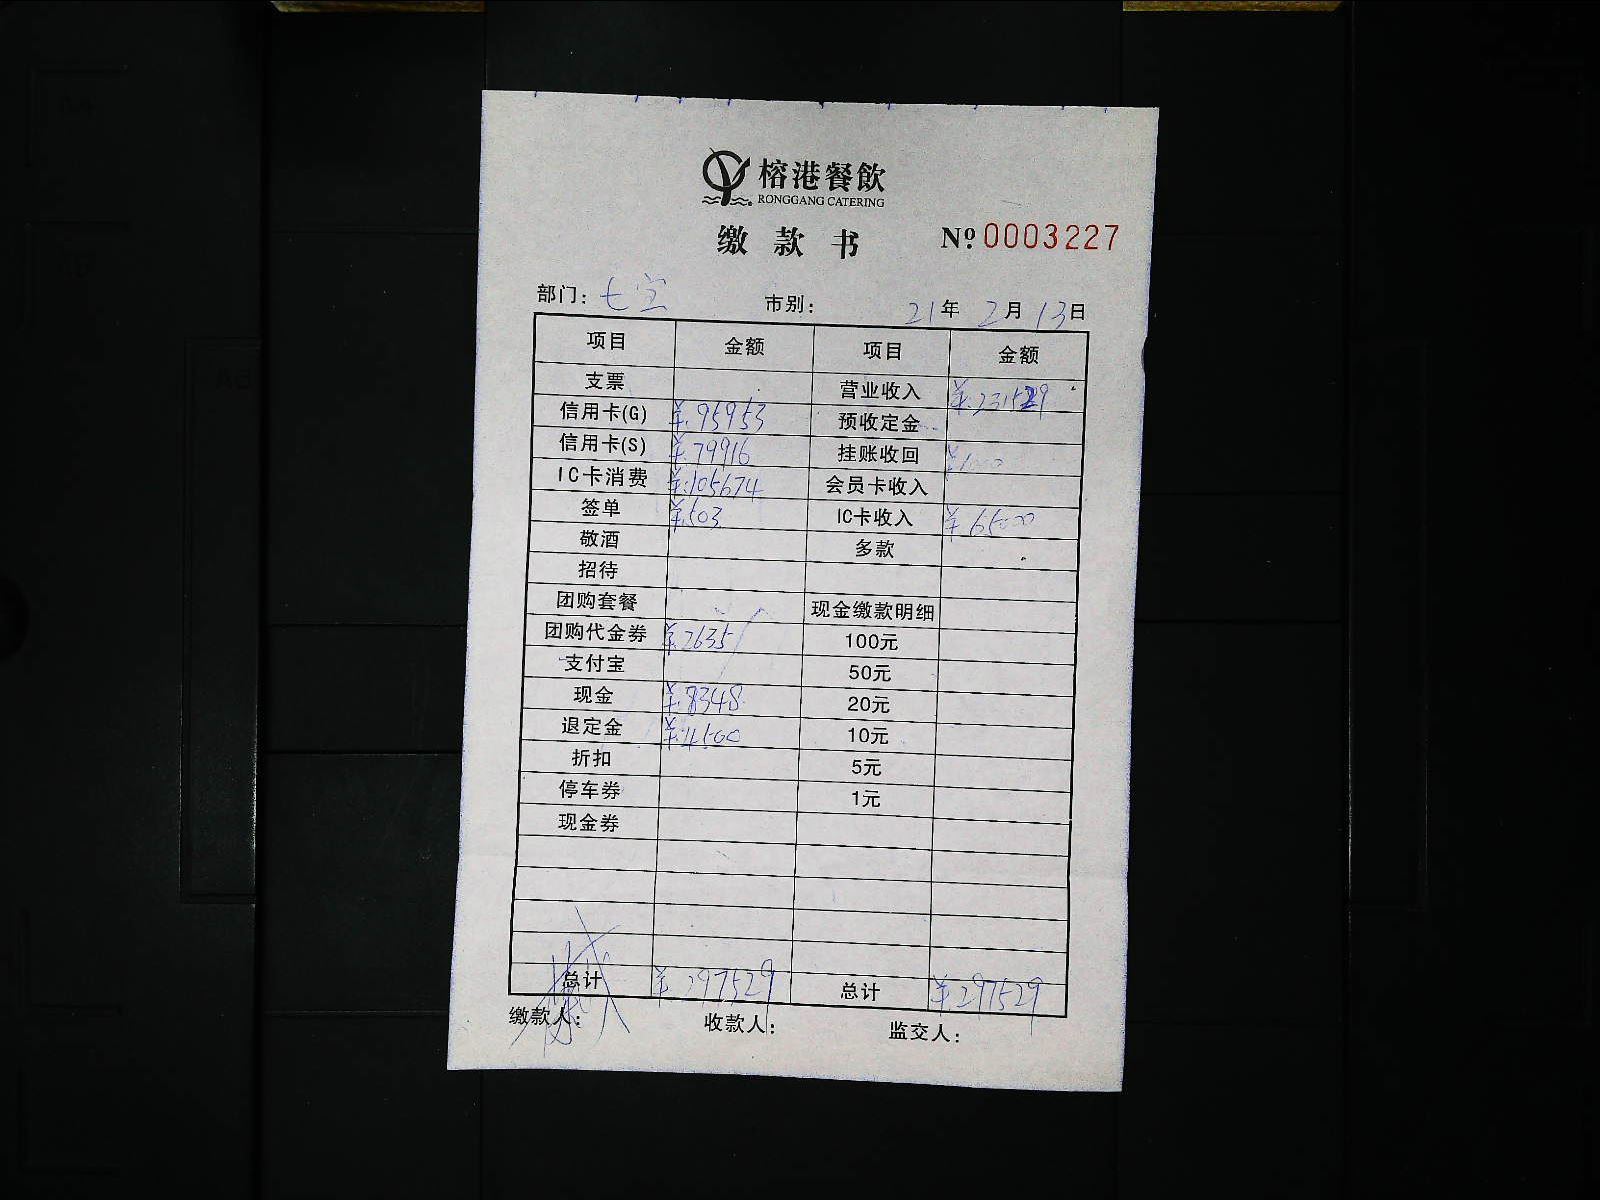 榕港餐飲
RONGGANG CATERING
缴款书 Nº 0003227
部门: 七宝 市别: 21年 2月 13日
项目 金额 项目 金额
支票 营业收入 ¥231529
信用卡(G) ¥95953 预收定金
信用卡(S) ¥79916 挂账收回 ¥1000
IC卡消费 ¥105674 会员卡收入
签单 ¥503 IC卡收入 ¥65000
敬酒 多款
招待
团购套餐 现金缴款明细
团购代金券 ¥2635 100元
支付宝 50元
现金 ¥8348 20元
退定金 ¥4500 10元
折扣 5元
停车券 1元
现金券
总计 ¥297529 总计 ¥297529
缴款人: 收款人: 监交人: